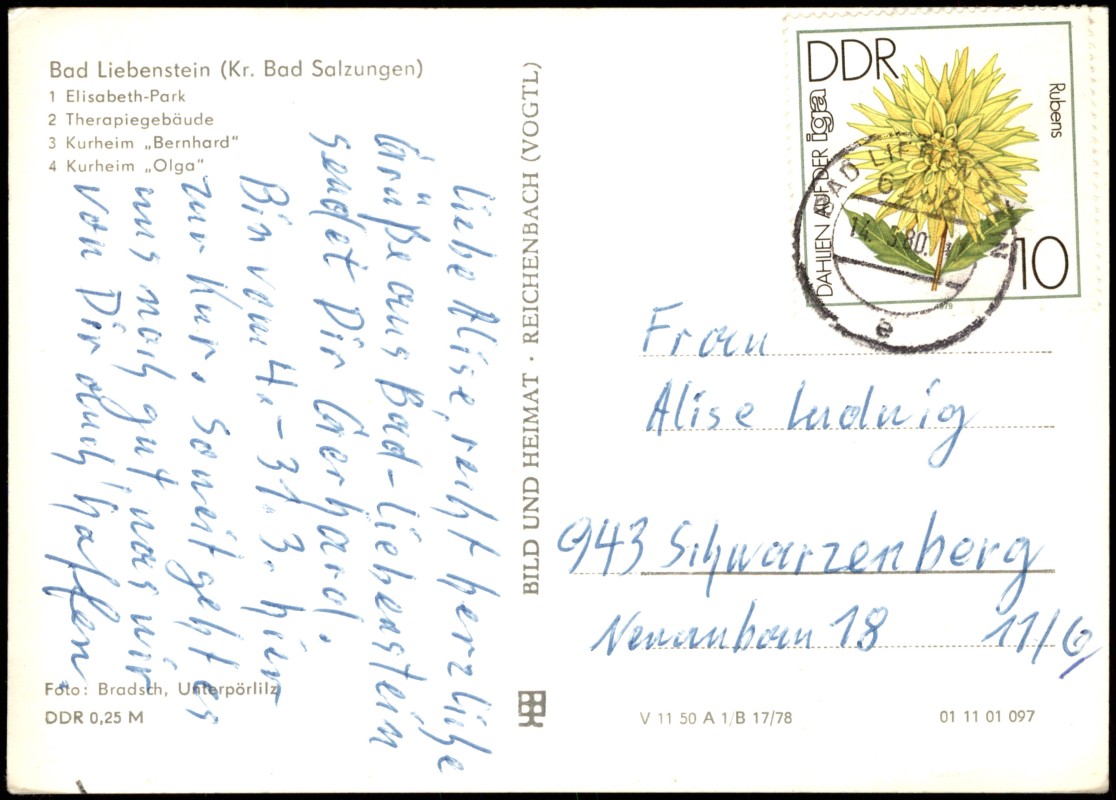 Bad Liebenstein (Kr. Bad Salzungen)
1 Elisabeth-Park
2 Therapiegebäude
3 Kurheim „Bernhard“
4 Kurheim „Olga“
Liebe Alise, recht herzliche
Grüße aus Bad-Liebenstein
sendet Dir Gerhard.
Bin vom 4.-31.3. hier
zur Kur. Soweit geht es
uns noch gut, was wir
von Dir auch hoffen.
Foto: Bradsch, Unterpörlitz
DDR 0,25 M
BILD UND HEIMAT · REICHENBACH (VOGTL)
DDR
DAHLIEN AUF DER iga
Rubens
10
1979
BAD LIEBENSTEIN
14. 3.80.
e
Frau
Alise Ludwig
943 Schwarzenberg
Neuanbau 18 11/6
V 11 50 A 1/B 17/78
01 11 01 097